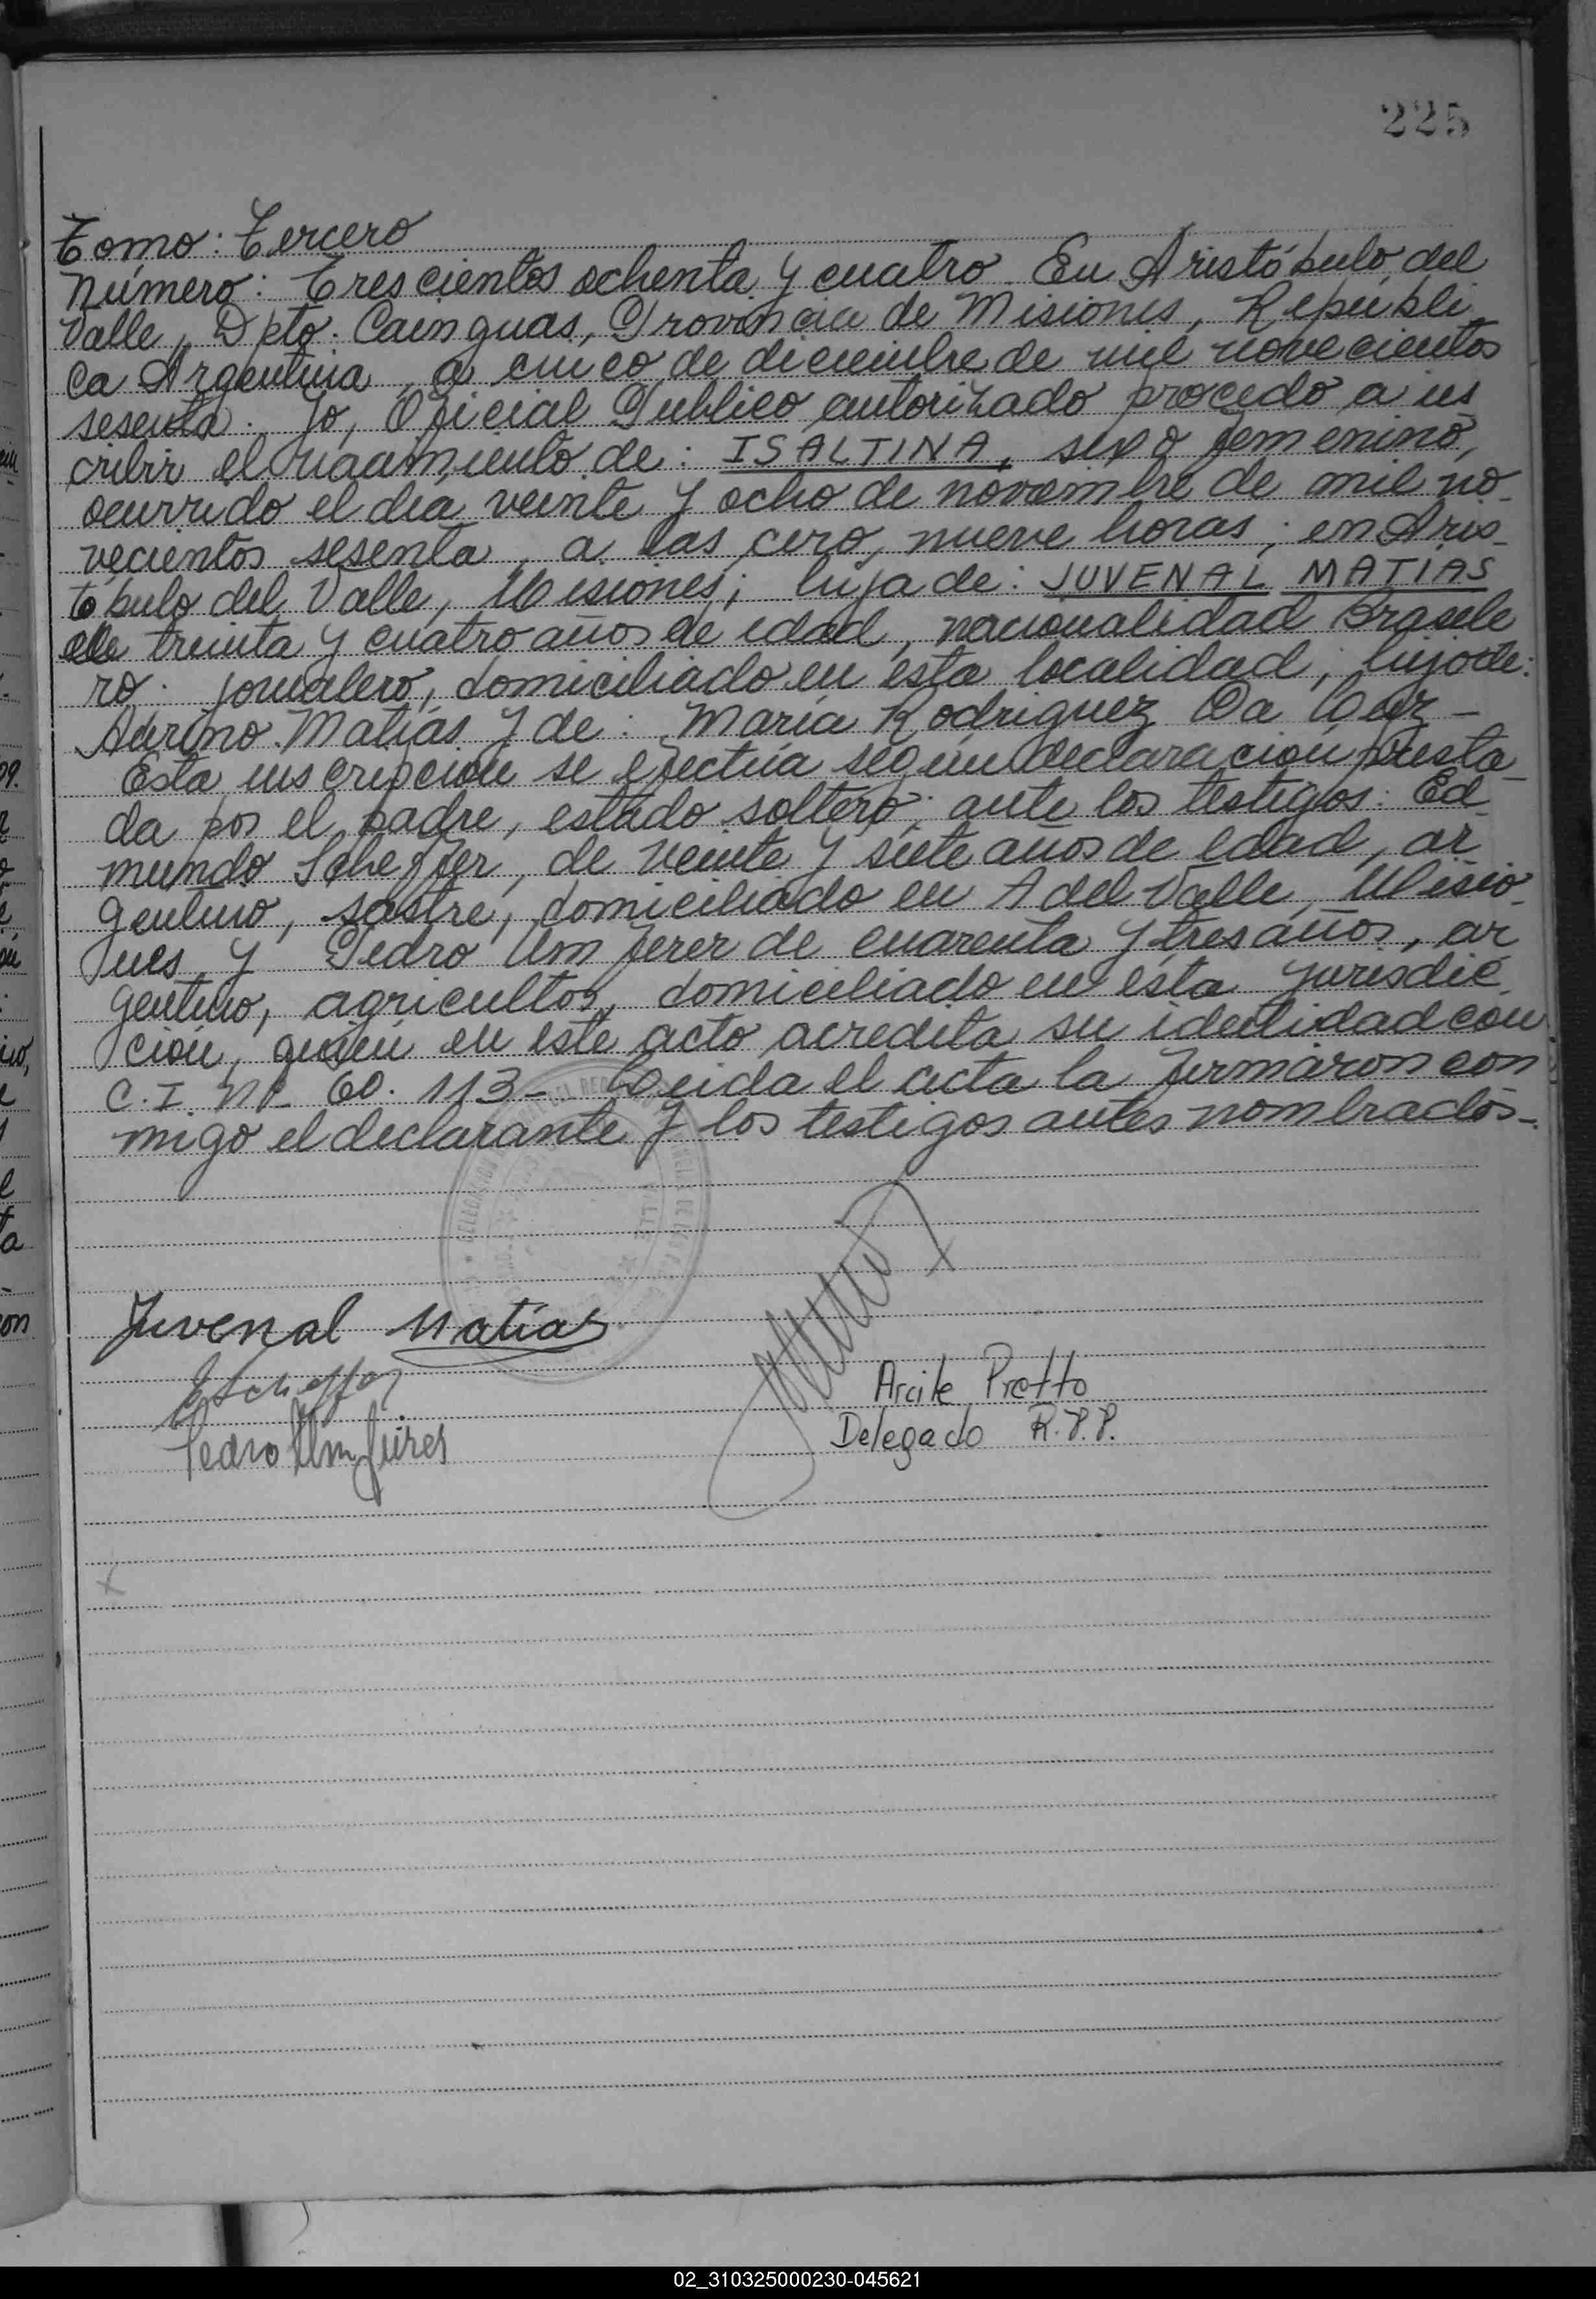 225
Tomo: Tercero
Número: Trescientos ochenta y cuatro. En Aristóbulo del
Valle, Dpto. Cainguas, Provincia de Misiones, Repúbli
ca Argentina, a cinco de diciembre de mil novecientos
sesenta. Yo, Oficial Publico autorizado procedo a ins
cribir el nacimiento de: ISALTINA, sexo femenino,
ocurrido el dia veinte y ocho de noviembre de mil no-
vecientos sesenta, a las cero, nueve horas; en Aris-
tóbulo del Valle, Misiones; hija de: JUVENAL MATIAS
de treinta y cuatro años de edad, nacionalidad Brasile
ro. jornalero, domiciliado en esta localidad; hijo de:
Matías y de: María Rodriguez Da
Esta inscripcion se efectúa según declaracion presta-
da por el padre, estado soltero; ante los testigos: Ed-
mundo Scheffer, de veinte y siete años de edad, ar
gentino, sastre, domiciliado en A del Valle, Misio-
nes y Pedro Umfurer de cuarenta y tres años, ar
gentino, agricultor, domiciliado en esta jurisdic
ción, quien en este acto acredita su identidad con
C.I. Nº 60.113- Leida el acta la firmaron con
migo el declarante y los testigos antes nombrados-.
Juvenal Matías
EScheffer
Pedro
Arcile Pretto
Delegado R.P.P.
02_310325000230-045621